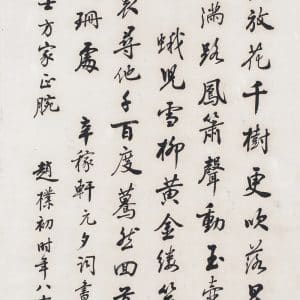 放花千樹更吹落星
滿路鳳簫聲動玉壺
蛾兒雪柳黃金縷笑
裏尋他千百度驀然回首
珊處 辛稼軒元夕詞書
士方家正腕 趙樸初時年八十